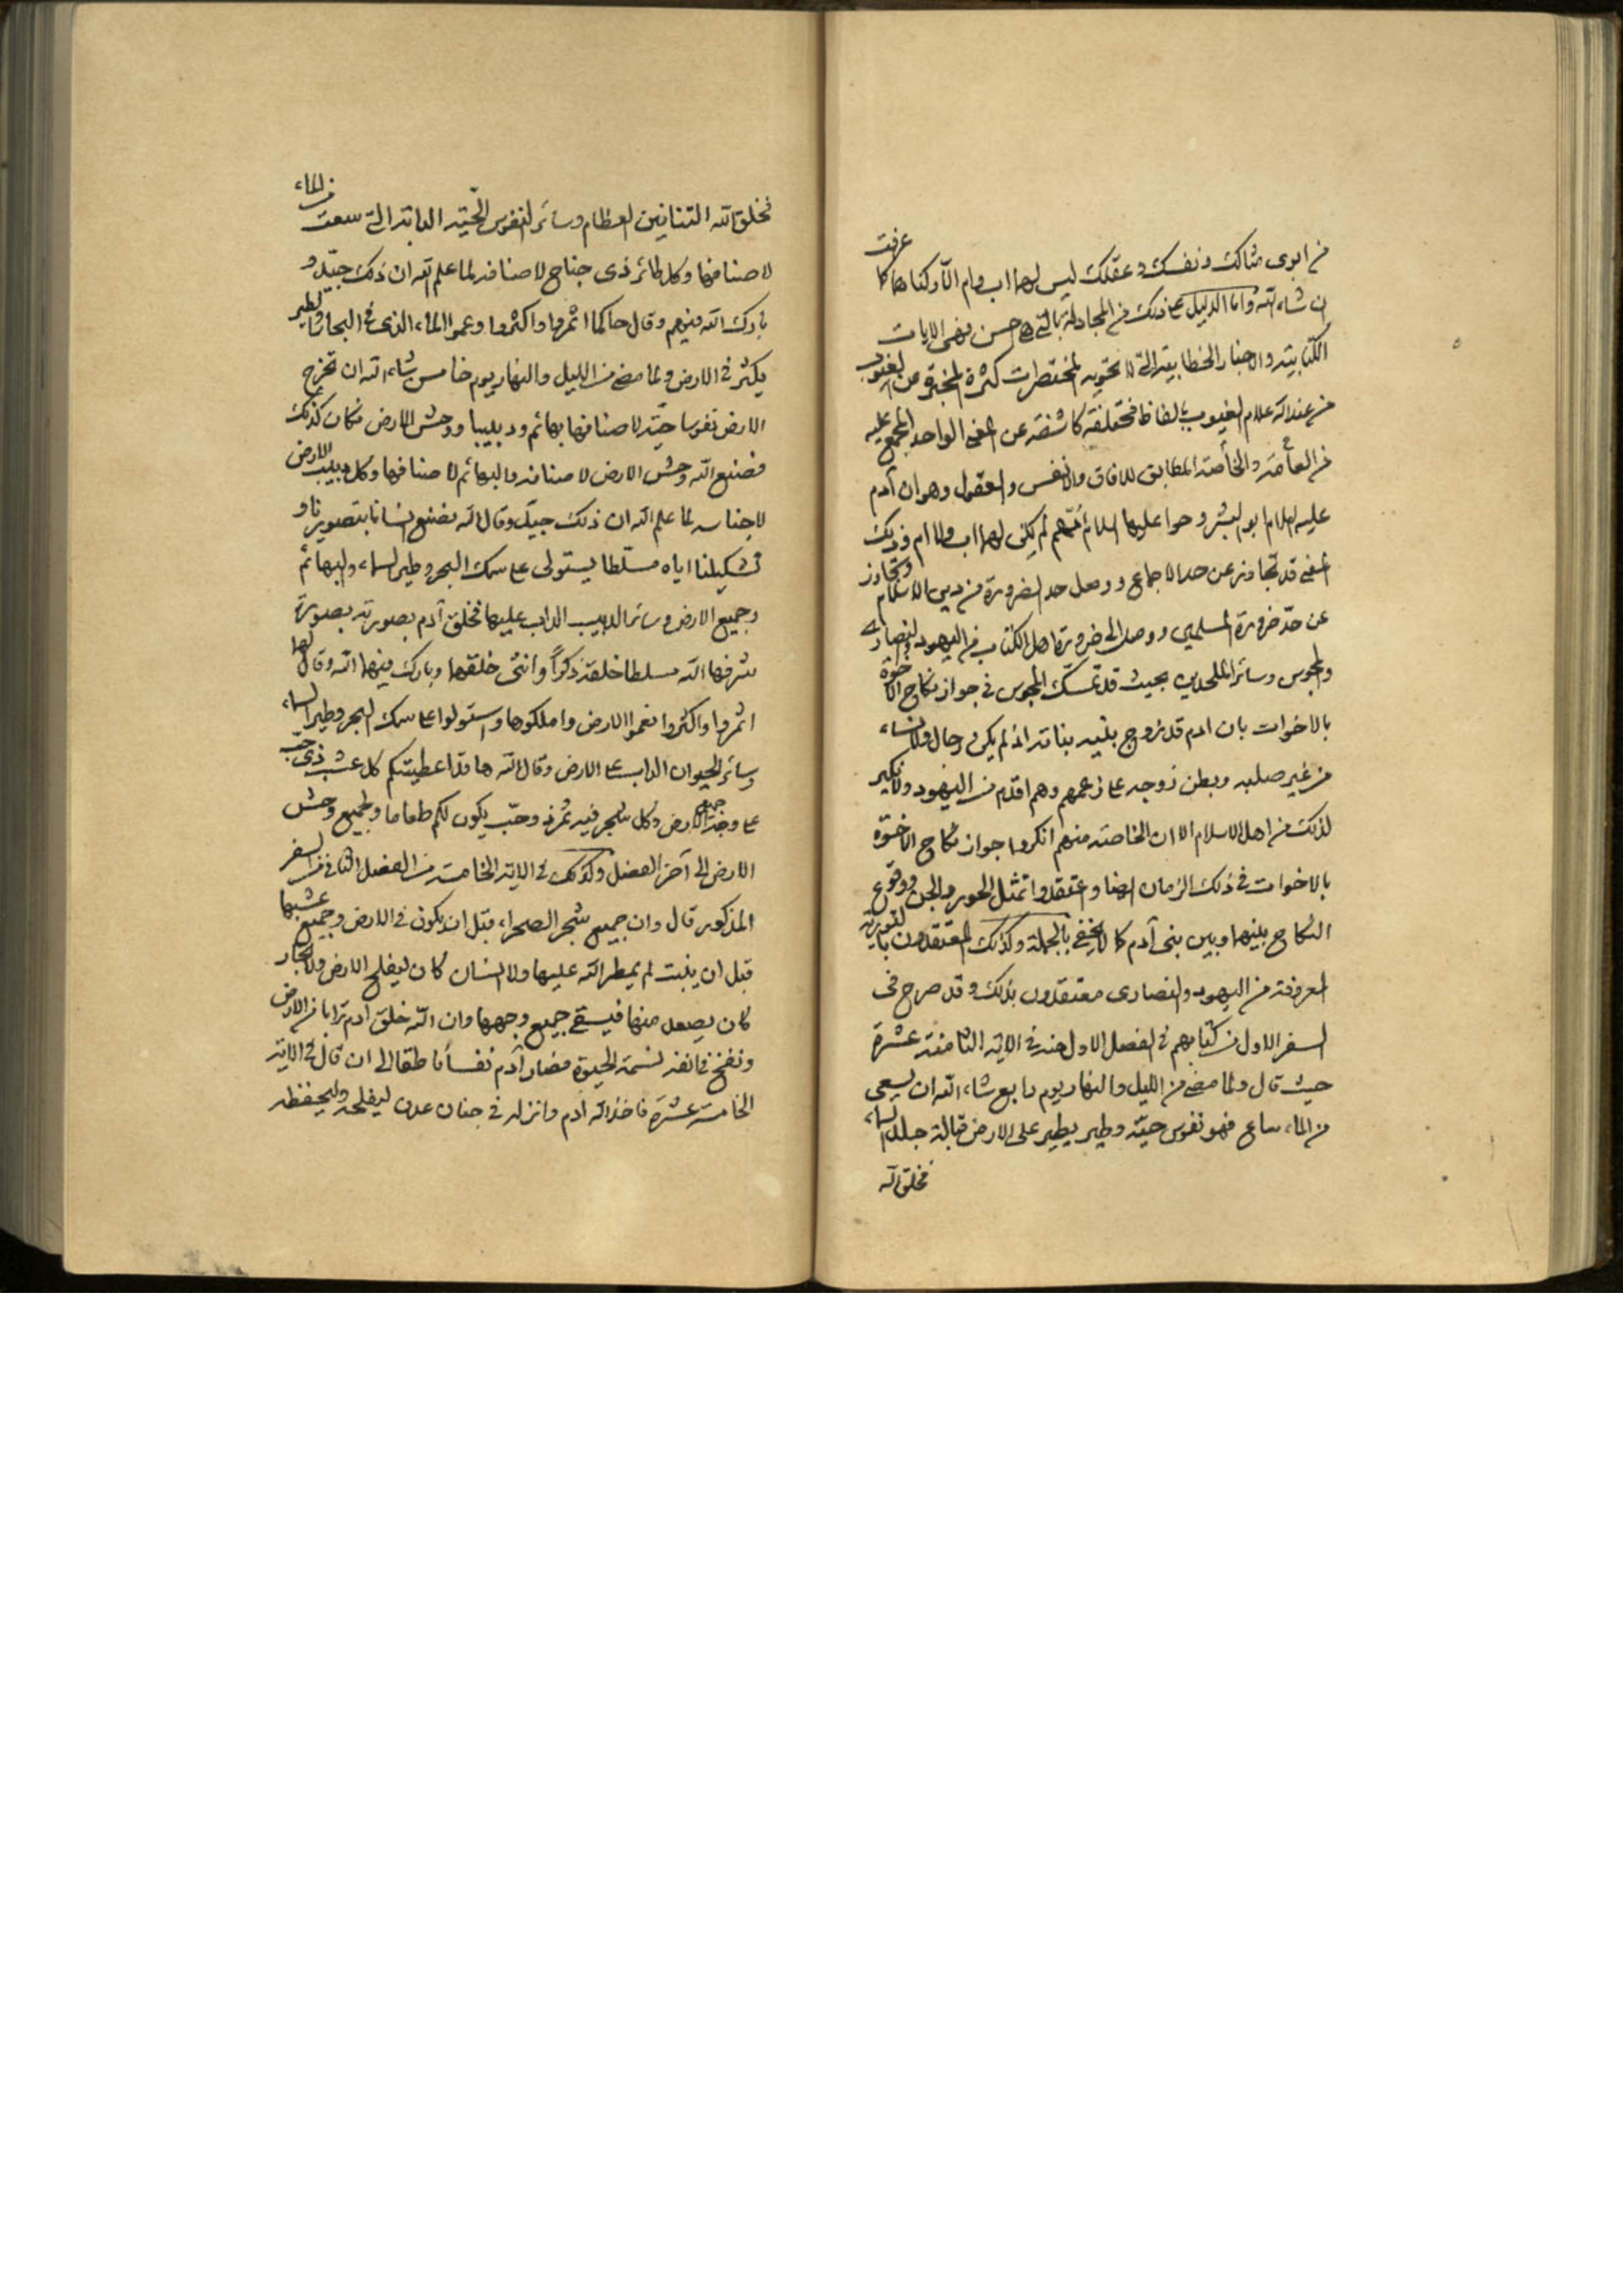 من ابوى مثالك ونفسك وعقلك ليس لهما اب وام الّا وكناهما كما عرفت
ان شاء الله واما الدليل على ذلك من المجادلة بالتي هي احسن فهى الايات
الكتابية والاخبار الخطابية التي لا تحويه المختصرات كثرة المخبرة عن الغيوب
من عند الله علام الغيوب بالفاظ مختلفة كاشفة عن المعنى الواحد المجمع عليه
من العامّة والخاصّة المطابق للافاق والانفس والعقول وهو ان آدم
عليه السلام ابو البشر وحوا عليها السلام امّهم لم يكن لهما اب ولا ام وذلك
المعنى قد تجاوز عن حد الاجماع ووصل حد الضرورة من دين الاسلام وتجاوز
عن حدّ ضرورة المسلمين ووصل الى ضرورة اهل الكتاب من اليهود والنصارى
والمجوس وسائر الملحدين بحيث قد تمسّك المجوس في جواز نكاح الاخوة
بالاخوات بان ادم قد زوج بنيه بناته اذ لم يكن رجال ولا نساء
من غير صلبه وبطن زوجه على زعمهم وهم اقدم من اليهود ولا نكير
لذلك من اهل الاسلام الا ان الخاصة منهم انكروا جواز نكاح الاخوّة
بالاخوات في ذلك الزمان ايضا واعتقدوا تمثل الحور والجن ووقوع
النكاح بينهما وبين بنى آدم كما لا يخفى بالجملة وكذلك المعتقدون بالتورية
المعروفة من اليهود والنصارى معتقدون بذلك وقد صرح فى
السفر الاول من كتابهم في الفصل الاول منه في الاية الثامنة عشرة
حيث قال ولما مضى من الليل والنهار يوم رابع شاء الله ان يسعى
من الماء ساع فهو نفوس حيّة وطير يطير على الارض قبالة جلد السماء
فخلق الله
فخلق الله التنانين العظام وسائر النفوس الحيّة الدابة التي سعت من الماء
لاصنافها وكل طائر ذى جناح لاصنافه لما علم الله ان ذلك جيّد و
بارك الله فيهم وقال حاكما اثمروا واكثروا وعموا الماء الذى في البحار والطير
يكثر في الارض ولما مضى من الليل والنهار يوم خامس شاء الله ان تخرج
الارض نفوسا حيّة لاصنافها بهائم ودبيبا ووحش الارض فكان كذلك
فصنع الله وحش الارض لاصنافه والبهائم لاصنافها وكل دبيب الارض
لاجناسه لما علم الله ان ذلك جيّد وقال الله نصنع انسانا بتصويرنا و
تشكيلنا اياه مسلّطا يستولى على سمك البحر وطير السماء والبهائم
وجميع الارض وسائر الدبيب الداب عليها فخلق آدم بصورته بصورة
شرفها الله مسلطا خلقه ذكراً وانثى خلقهما وبارك فيهما الله وقال لهما
اثمروا واكثروا فعموا الارض واملكوها واستولوا على سمك البحر وطير السماء
وسائر الحيوان الداب على الارض وقال الله ها قد اعطيتكم كل عشب ذى حب
على وجه جميع الارض وكل شجر فيه ثمرة وحبّ يكون لكم طعاما ولجميع وحش
الارض الى آخر الفصل وكذلك في الاية الخامسة من الفصل الثاني من السفر
المذكور قال وان جميع شجر الصحراء قبل ان يكون في الارض وجميع عشبها
قبل ان ينبت لم يمطر الله عليها ولا انسان كان ليفلح الارض ولا بخار
كان يصعد منها فيسقى جميع وجهها وان الله خلق ادم ترابا من الارض
ونفخ في انفه نسمة الحيوة فصار آدم نفساً ناطقا الى ان قال في الاية
الخامسة عشرة فاخذ الله ادم وانزله في جنان عدن ليفلحه وليحفظه